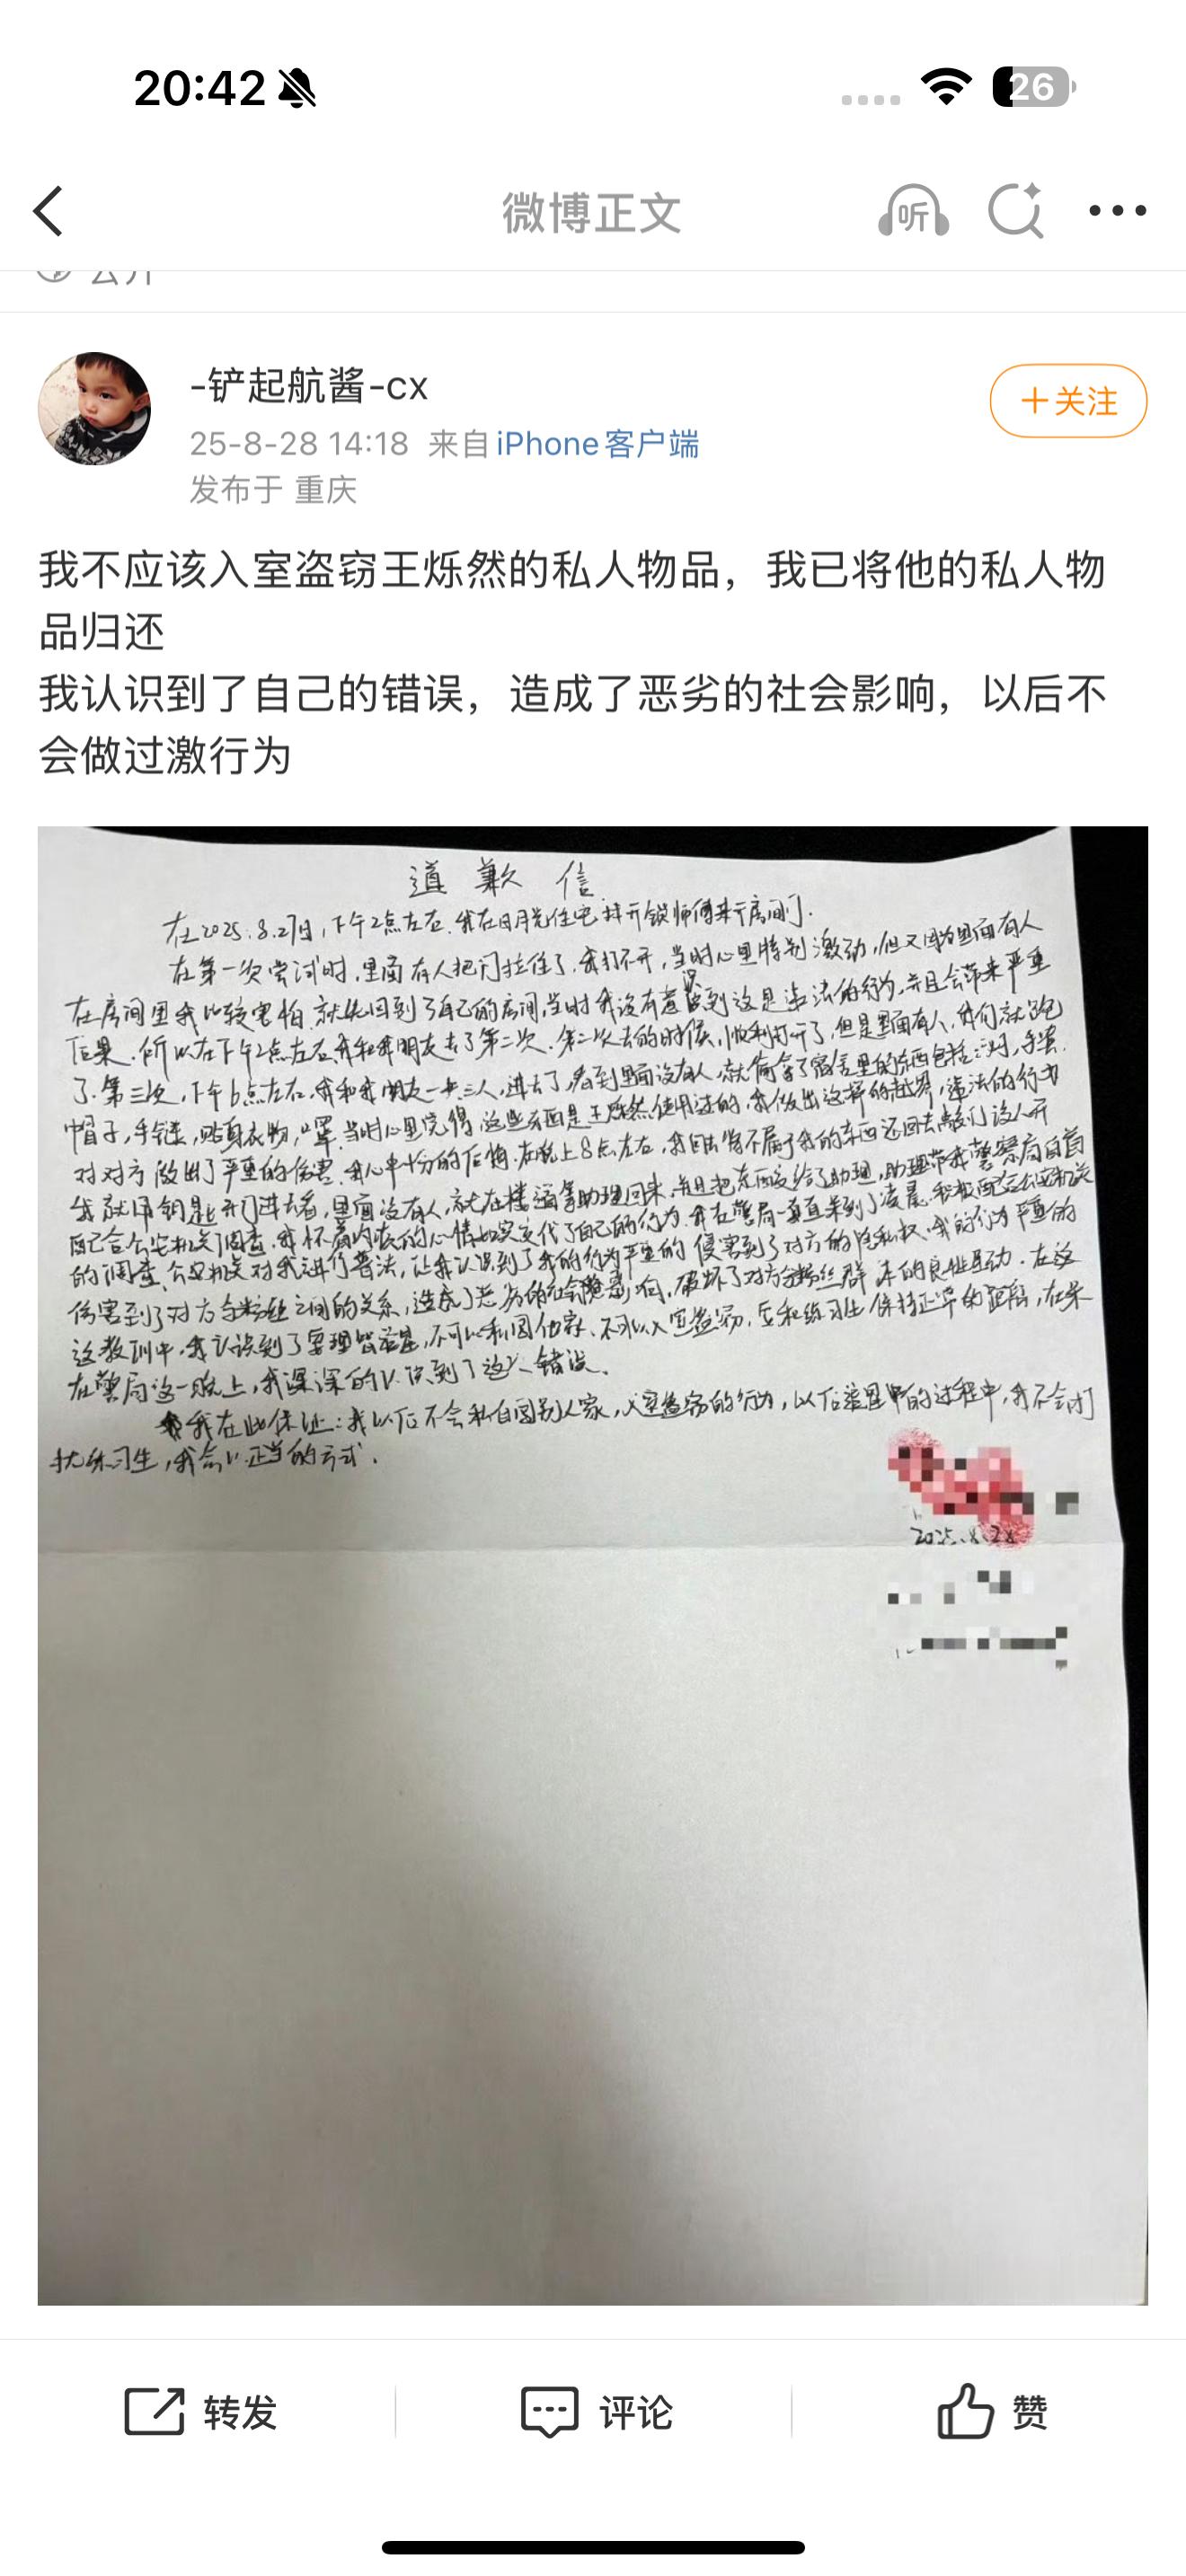 20:42
26
微博正文
听
公开
-铲起航酱-cx
+关注
25-8-28 14:18 来自 iPhone客户端
发布于 重庆
我不应该入室盗窃王烁然的私人物品，我已将他的私人物
品归还
我认识到了自己的错误，造成了恶劣的社会影响，以后不
会做过激行为
道歉信
在2025.8.27日,下午2点左右.我在日月光住宅找开锁师傅来开房间门.
在第一次尝试时,里面有人把门拉住了,我打不开,当时心里特别激动,但又因为里面有人
在房间里我比较害怕.就先回到了自己的房间,当时我没有意识到这是违法的行为,并且会带来严重
后果.所以在下午2点左右,我和我朋友去了第二次.第二次去的时候,顺利打开了,但是里面有人,我们就跑
了.第三次,下午6点左右.我和我朋友一共三人,进去了,看到里面没有人,就偷拿了宿舍里的东西包括:
帽子,手链,贴身衣物,口罩.当时心里觉得,这些东西是王烁然使用过的,我做出这样的越界,违法的行为
对对方做出了严重的伤害.我心中十分的后悔.在晚上8点左右,我自己将不属于我的东西还回去敲门没人开
我就用钥匙开门进去看,里面没有人,就在楼道等助理回来,并且把东西交给了助理,助理带我警察局自首
配合公安机关调查.我怀着内疚的心情如实交代了自己的行为.我在警局一直呆到了凌晨.积极配合公安机关
的调查.公安机关对我进行普法,让我认识到了我的行为严重的侵害到了对方的隐私权.我的行为严重的
伤害到了对方与粉丝之间的关系,造成了恶劣的社会影响,破坏了对方与粉丝群体的良性互动.在这
这教训中,我认识到了要理智追星,不可以私闯他家.不可以入室盗窃,应和练习生保持正常的距离,在呆
在警局这一晚上,我深深的认识到了这个错误.
我在此保证:我以后不会私自闯别人家,入室盗窃的行为,以后追星中的过程中,我不会打
扰练习生,我会以正当的方式.
2025.8.28
转发
评论
赞